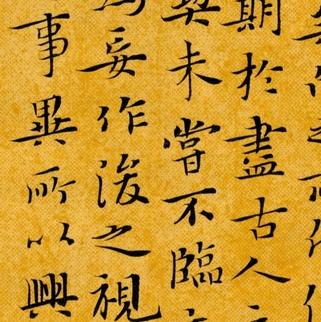 期於盡古人
契未嘗不臨
為妄作後之視
事異所以興